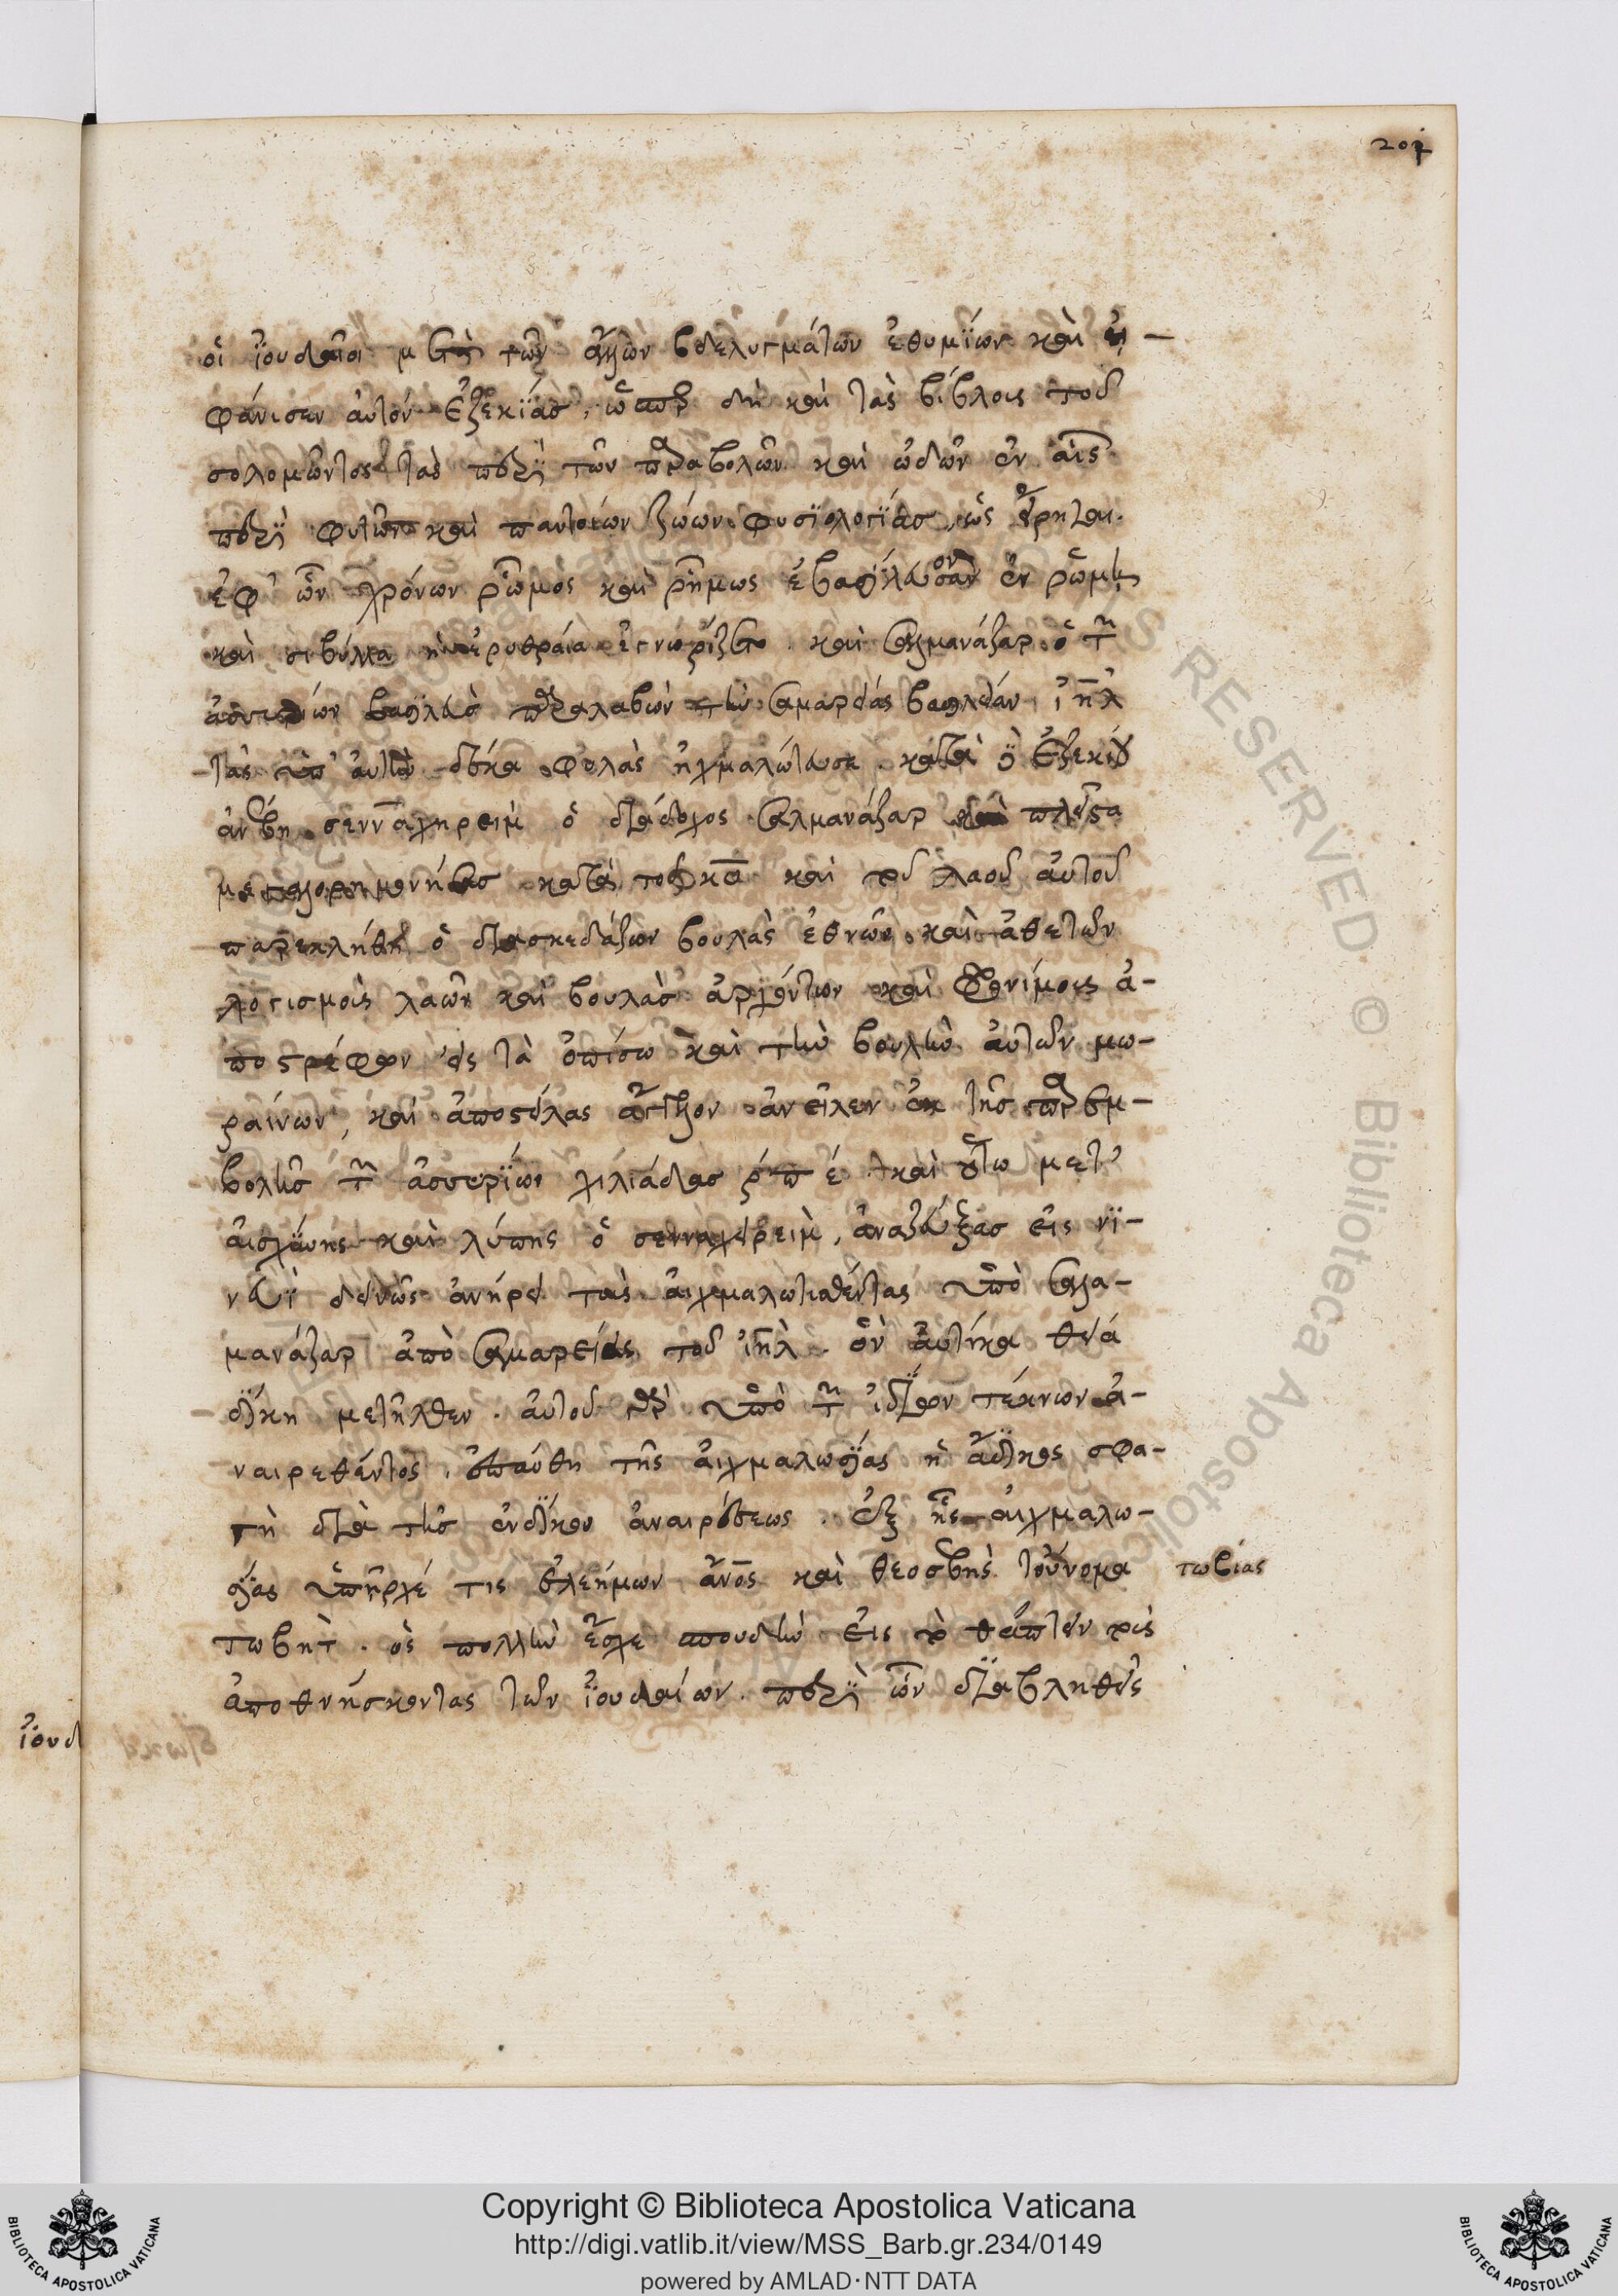 207
οἱ ἰουδαῖοι μετὰ τῶν ἄλλων βδελυγμάτων ἐθυμίων καὶ ἠ-
φάνισεν αὐτὸν Ἐζεκίας, ὥσπερ δὴ καὶ τὰς βίβλους τοῦ
σολομῶντος τὰς περὶ τῶν παραβολῶν καὶ ὠδῶν ἐν αἷς
περὶ φυτῶν καὶ παντοίων ζώων φυσιολογίας, ὡς εἴρηται.
ἐφ' ὧν χρόνων ῥῶμος καὶ ῥῆμος ἐβασίλευον ἐν ῥώμῃ
καὶ σιβύλλα ἡ ἐρυθραία ἐγνωρίζετο. καὶ σαλμανάζαρ ὁ τῶν
ἀσυρίων βασιλεὺς παραλαβὼν τὴν σαμαρείας βασιλείαν ἰηλ
τὰς ὑπ' αὐτὸν δέκα φυλὰς ᾐχμαλώτευσε. κατὰ δὲ Ἐζεκίου
ἀνέβη σενναχηρεὶμ ὁ διάδοχος σαλμανάζαρ καὶ πλεῖστα
κατὰ τοῦ καὶ τοῦ λαοῦ αὐτοῦ
παρεκλήθη ὁ διασκεδάζων βουλὰς ἐθνῶν καὶ ἀθετῶν
λογισμοὺς λαῶν καὶ βουλὰς ἀρχόντων καὶ φρονίμους ἀ-
ποστρέφων εἰς τὰ ὀπίσω καὶ τὴν βουλὴν αὐτῶν μω-
ραίνων, καὶ ἀποστείλας ἄγγελον ἀνεῖλεν ἐκ τῆς παρεμ-
βολῆς τῶν ἀσσυρίων χιλιάδας ρπε. καὶ οὕτω μετ'
αἰσχύνης καὶ λύπης ὁ σενναχειρεὶμ, ἀναζεύξας εἰς νϊ-
νευΐ δεινῶς ἀνῄρει τοὺς αἰχμαλωτισθέντας ὑπὸ σαλα-
μανάζαρ ἀπὸ σαμαρείας τοῦ ἰηλ. ὃν αὐτίκα θεία
δίκη μετῆλθεν. αὐτοῦ γὰρ ὑπὸ τῶν ἰδίων τέκνων ἀ-
ναιρεθέντος. ἐπαύθη τῆς αἰχμαλωσίας ἡ ἄδικος σφα-
γὴ διὰ τῆς ἐνδίκου ἀναιρέσεως. ἐξ ἧς αἰχμαλω-
σίας ὑπῆρχέ τις ἐλεήμων ἄνος καὶ θεοσεβὴς τοὔνομα
τωβίας
τωβητ. ὃς πολλὴν ἔσχε σπουδὴν εἰς τὸ θάπτειν τοὺς
ἀποθνήσκοντας τῶν ἰουδαίων. περὶ ὧν διαβληθεὶς
ἰουδ
Copyright © Biblioteca Apostolica Vaticana
http://digi.vatlib.it/view/MSS_Barb.gr.234/0149
powered by AMLAD·NTT DATA
BIBLIOTECA APOSTOLICA VATICANA
BIBLIOTECA APOSTOLICA VATICANA